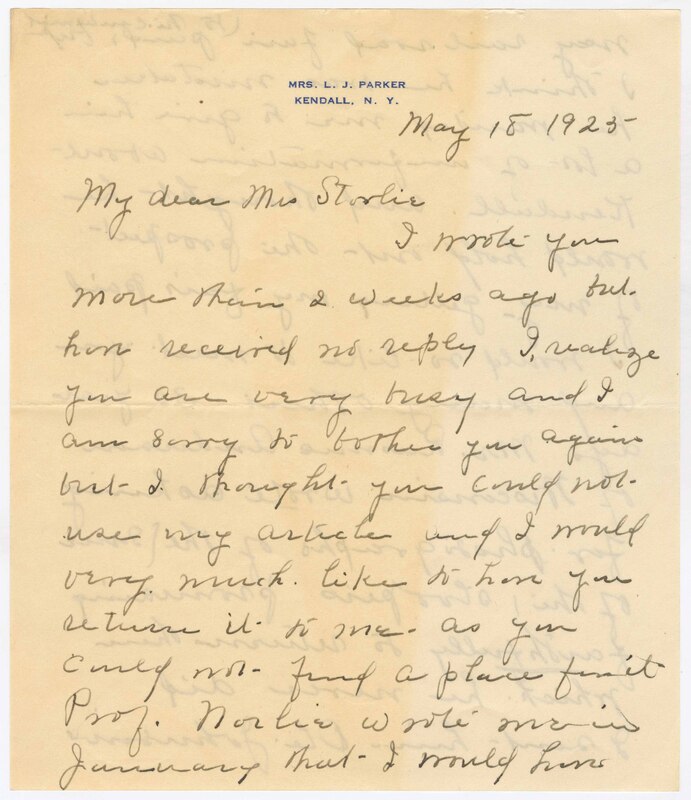 MRS. L. J. PARKER
KENDALL, N. Y.
May 18 1925
My dear Mrs Storlie
I wrote you
more than 2 weeks ago but
have received no reply I, realize
you are very busy and I
am sorry to bother you again
but I thought you could not
use my article and I would
very much like to have you
return it to me - as you
could not find a place for it
Prof. Norlie wrote me in
January that I would have